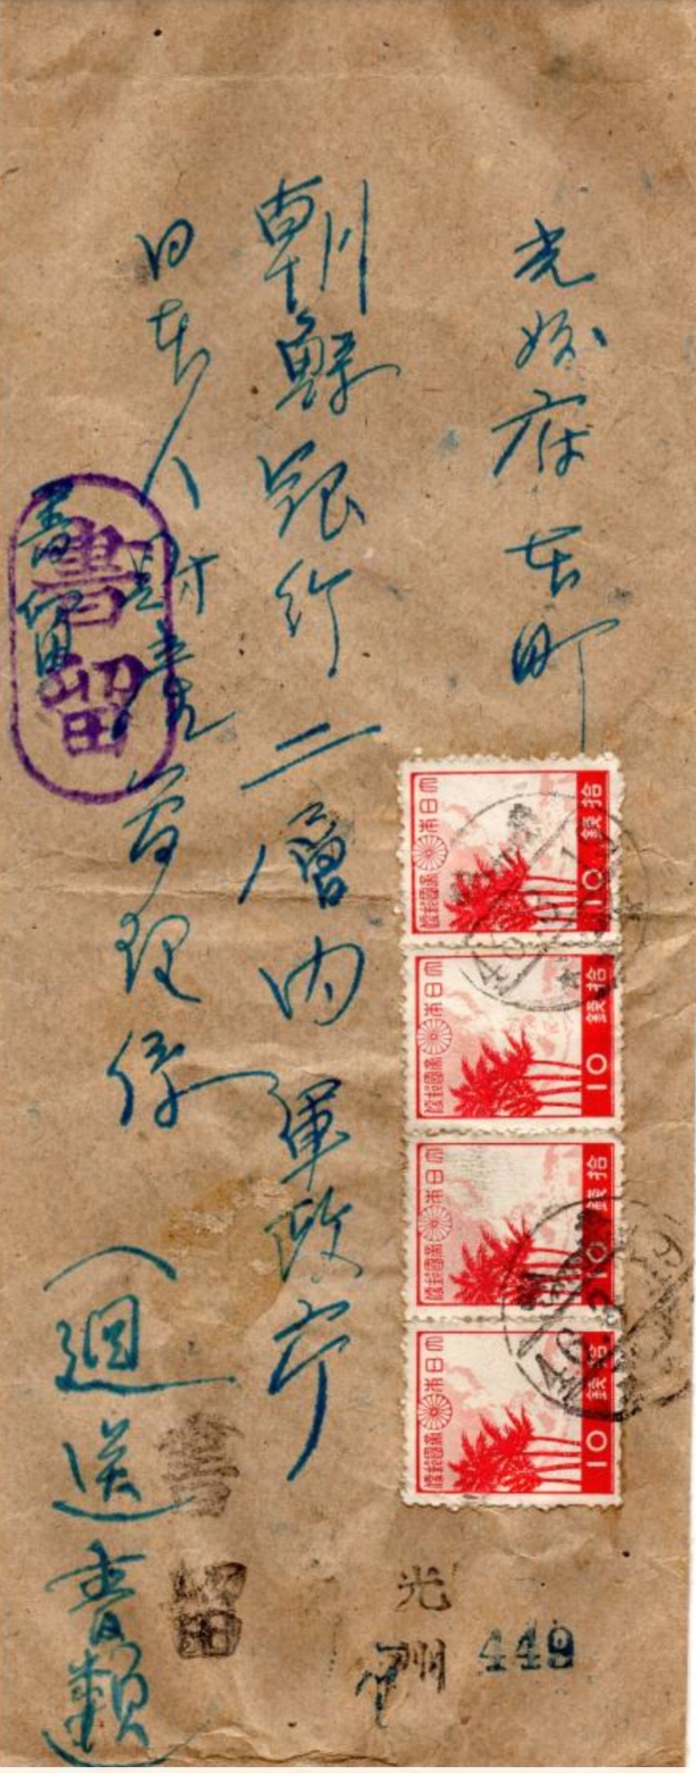 光州府本町
朝鮮銀行二層内 軍政庁
日本人財産管理係
(迴送書類)
書留
書留
書留
大日本帝國郵便
拾錢
10
大日本帝國郵便
拾錢
10
大日本帝國郵便
拾錢
10
大日本帝國郵便
拾錢
10
光州
449